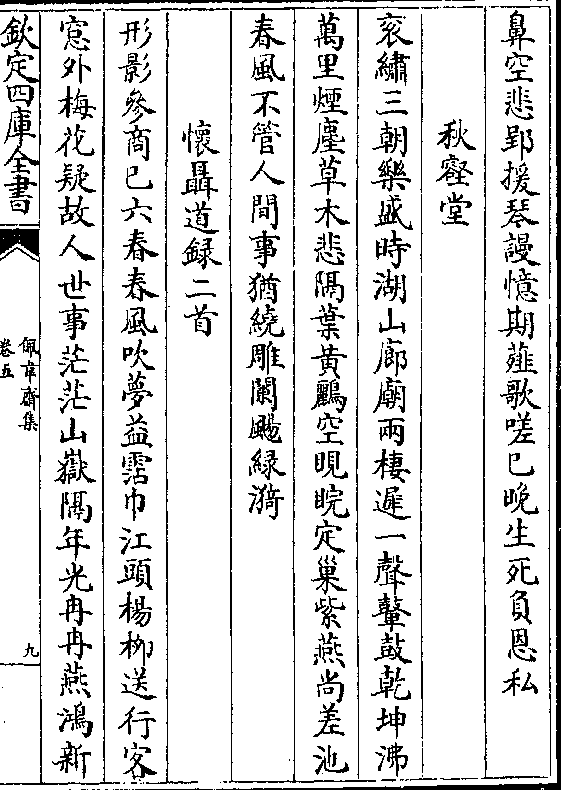 鼻空悲郢援琴謾憶期薤歌嗟已晚生死負恩私
秋壑堂
衮繡三朝樂盛時湖山廊廟兩棲遲一聲鼙鼓乾坤沸
萬里煙塵草木悲隔葉黄鸝空睍睆定巢紫燕尚差池
春風不管人間事猶繞雕闌颺緑漪
懷聶道録二首
形影參商已六春春風吹夢益霑巾江頭楊柳送行客
窻外梅花疑故人世事茫茫山嶽隔年光冉冉燕鴻新
欽定四庫全書
佩韋齋集
卷五
九